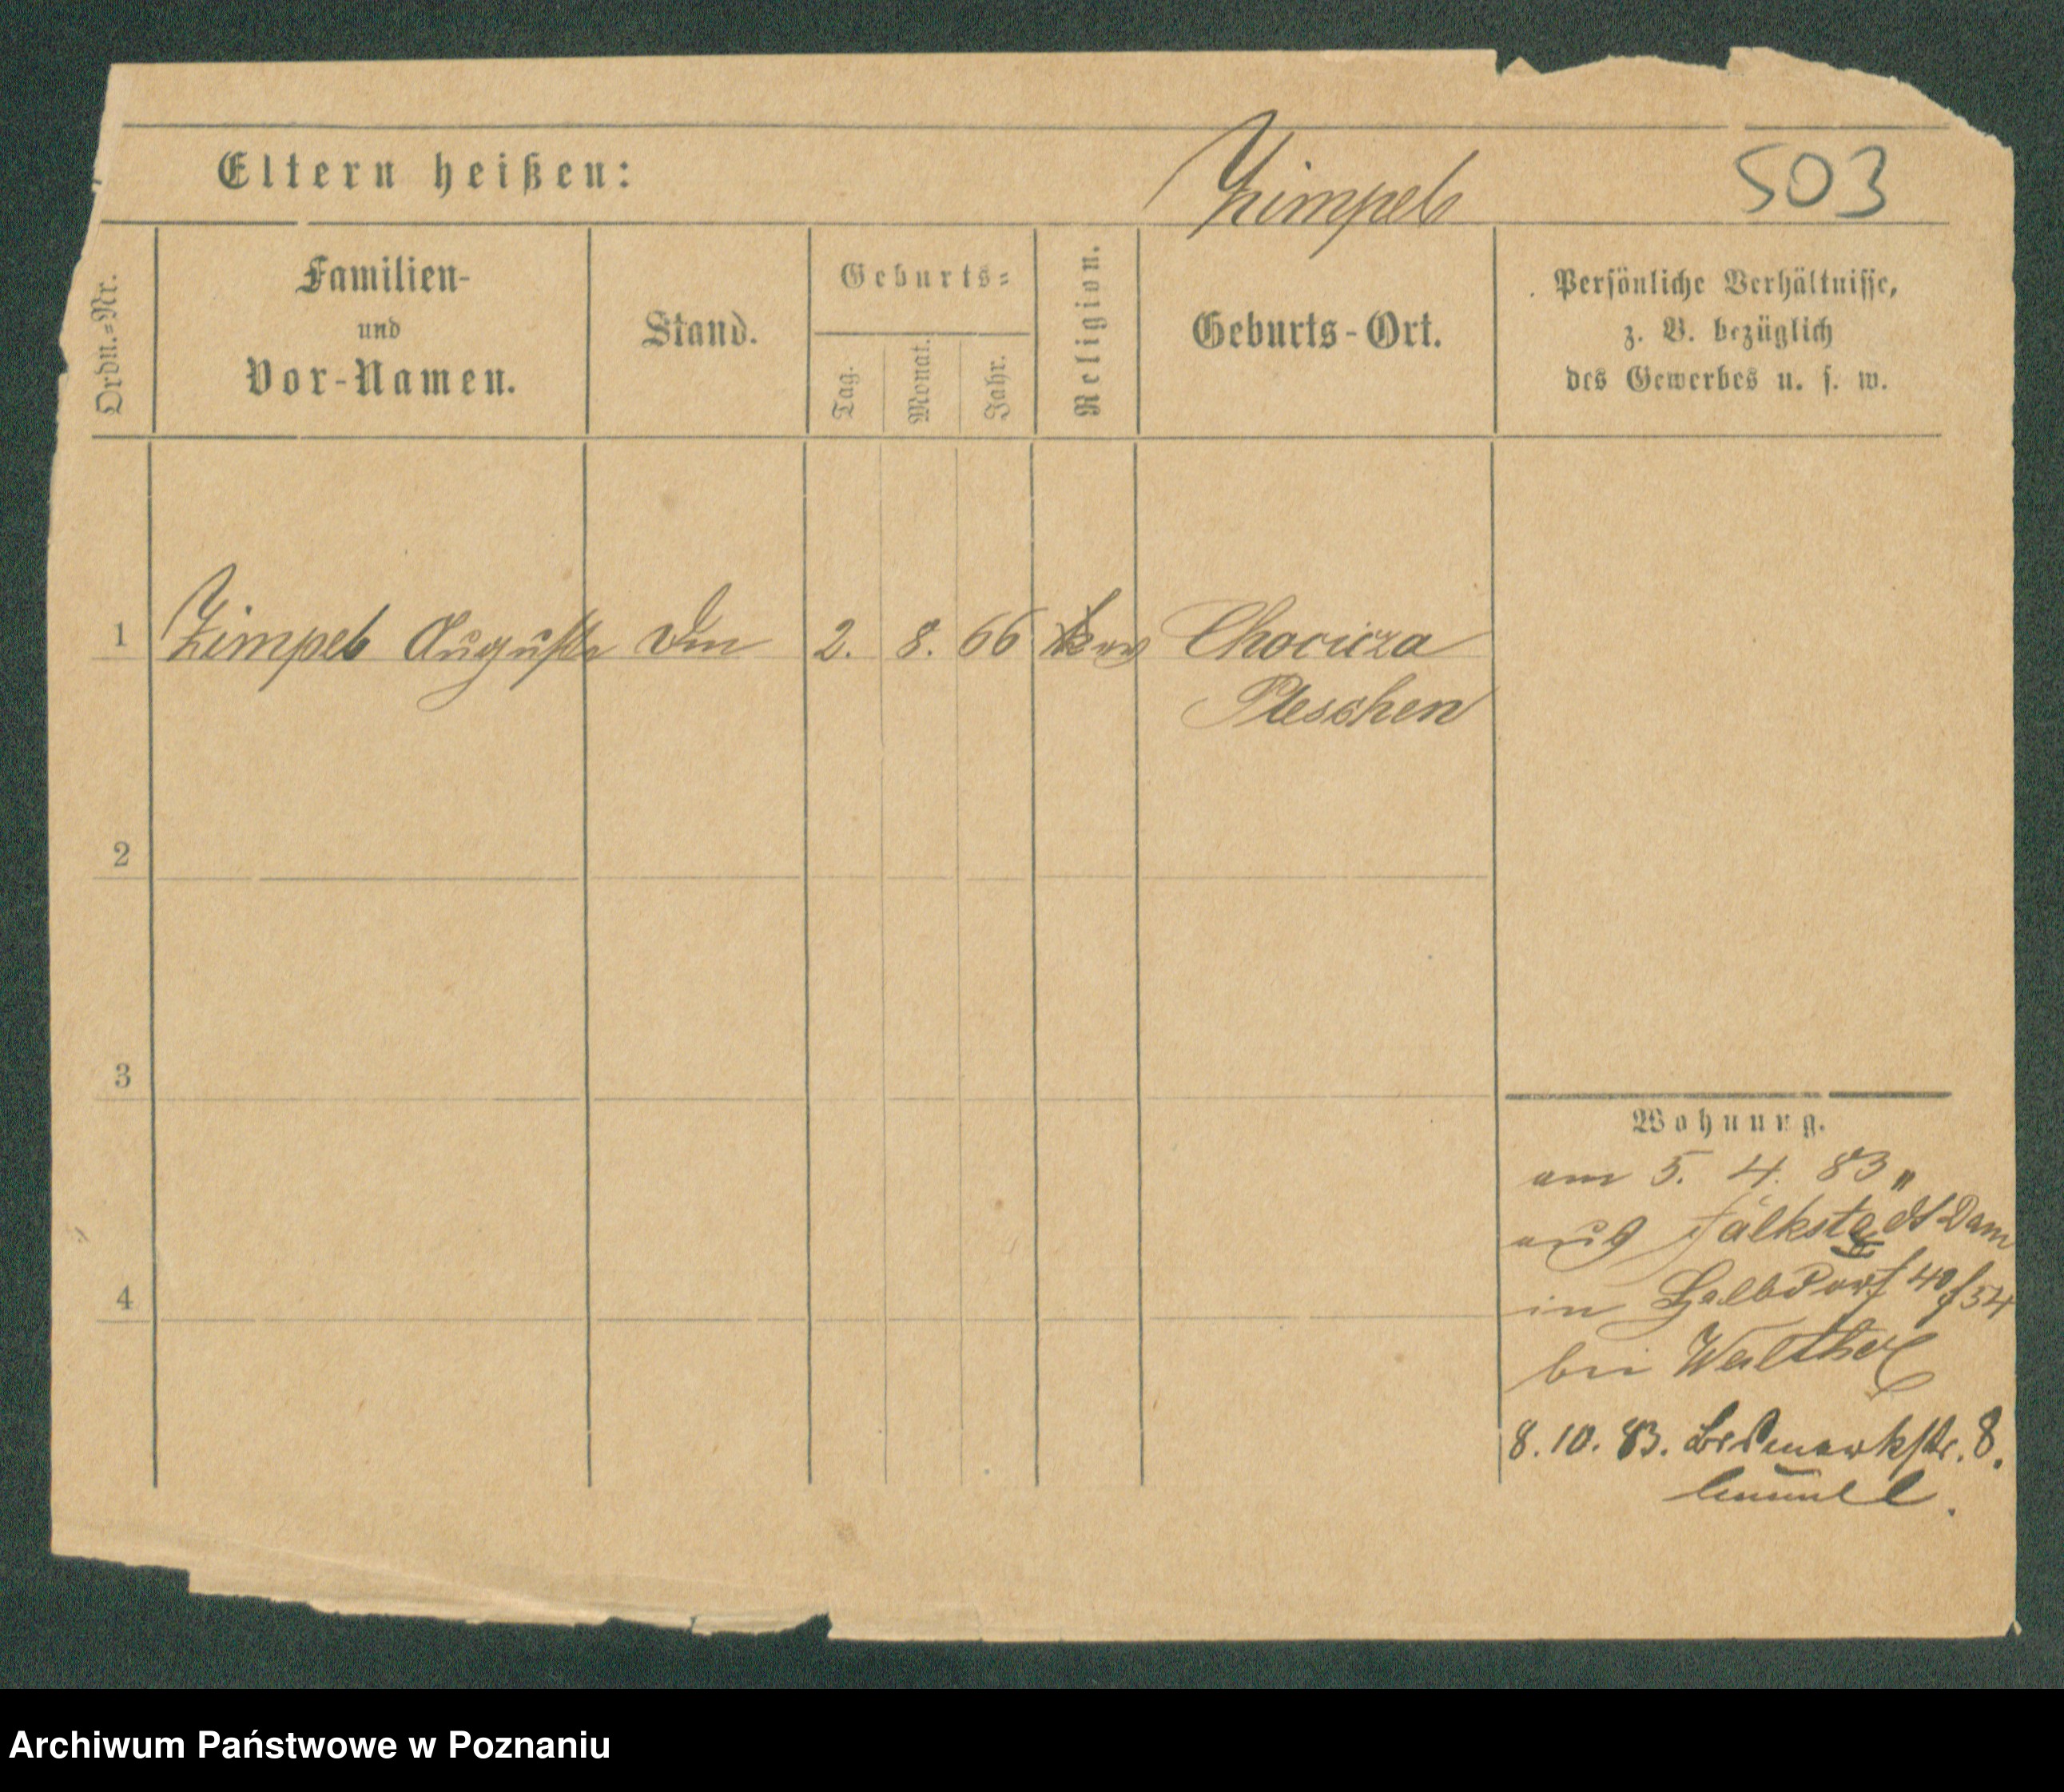 Eltern heißen:
Zimpel 503
Ordn.-Nr.
Familien-
und
Vor-Namen.
Stand.
Geburts-
Tag.
Monat.
Jahr.
Religion.
Geburts-Ort.
Persönliche Verhältnisse,
z. B. bezüglich
des Gewerbes u. s. w.
1 Zimpel Auguste 2. 8. 66 Chocicza
Pleschen
2
3
4
Wohnung.
am 5. 4. 83
aus
in Halbdorf
bei Walther
8. 10. 83. Bismarkstr. 8.
Archiwum Państwowe w Poznaniu